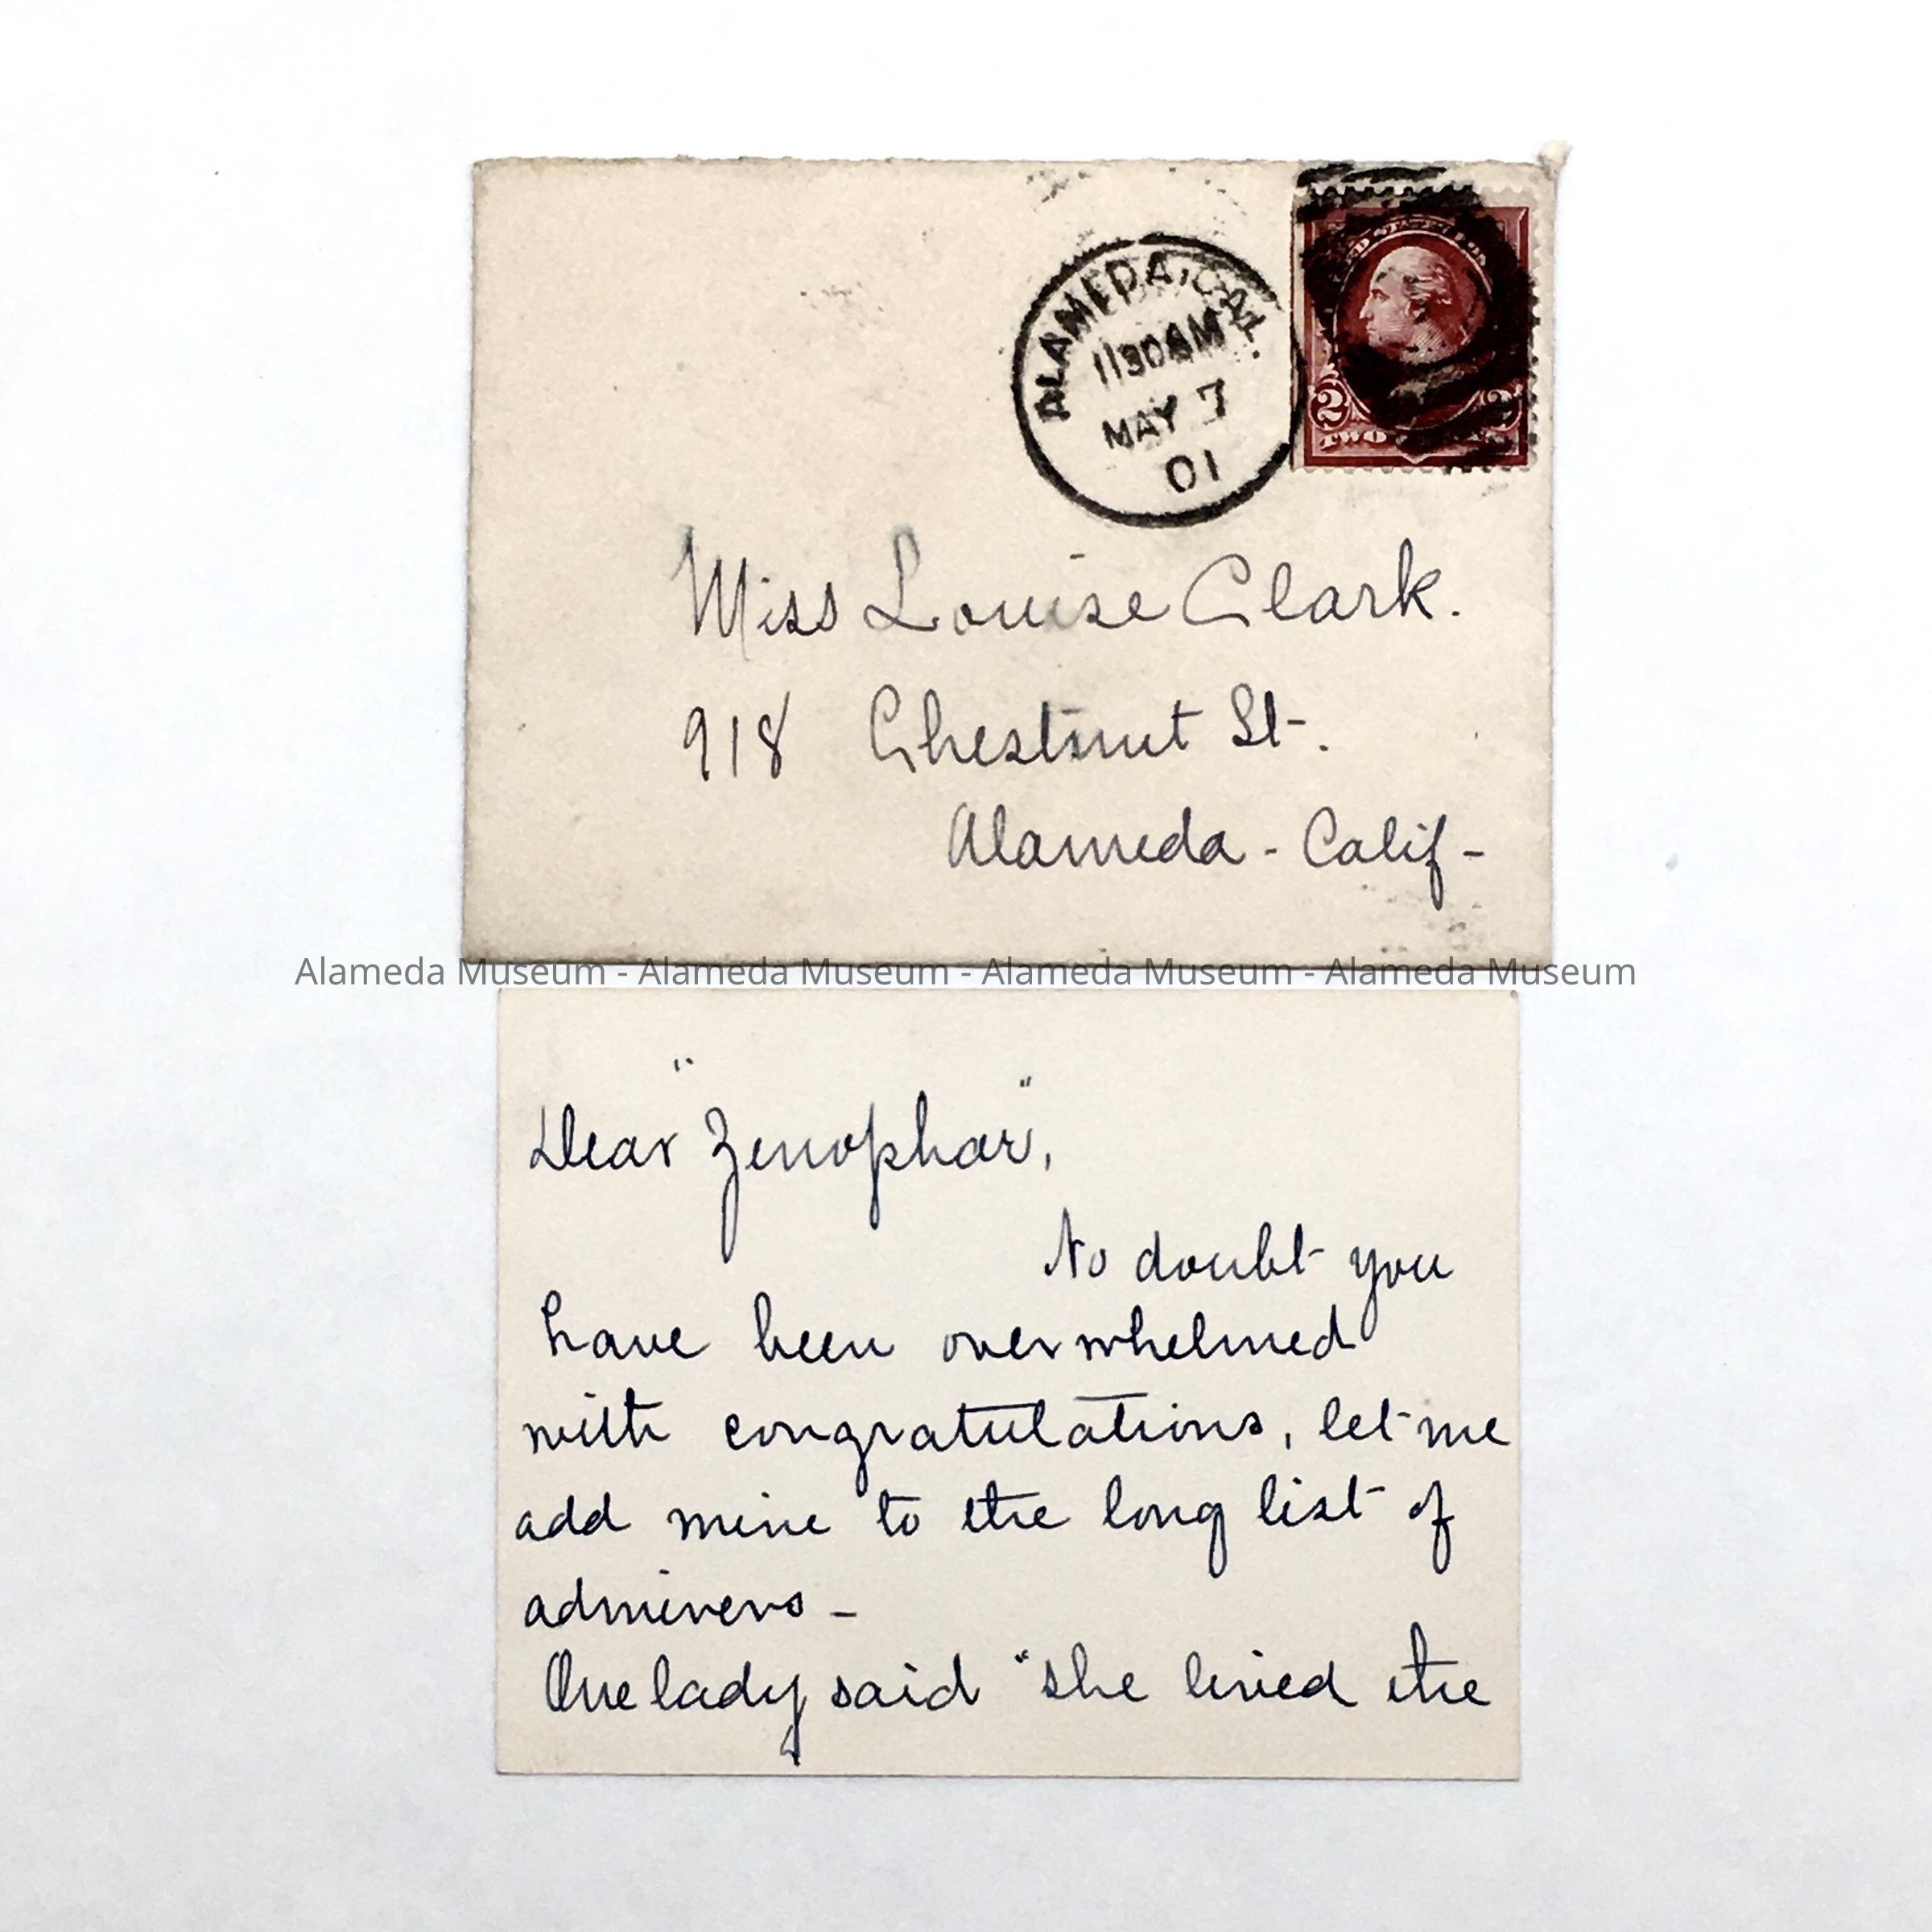 ALAMEDA, CAL.
1130AM
MAY 7
01
2
TWO
Miss Louise Clark.
918 Chestnut St.
Alameda - Calif -
Alameda Museum - Alameda Museum - Alameda Museum - Alameda Museum
Dear "Zenophar",
No doubt you
have been overwhelmed
with congratulations, let me
add mine to the long list of
admirers -
One lady said "she lived the